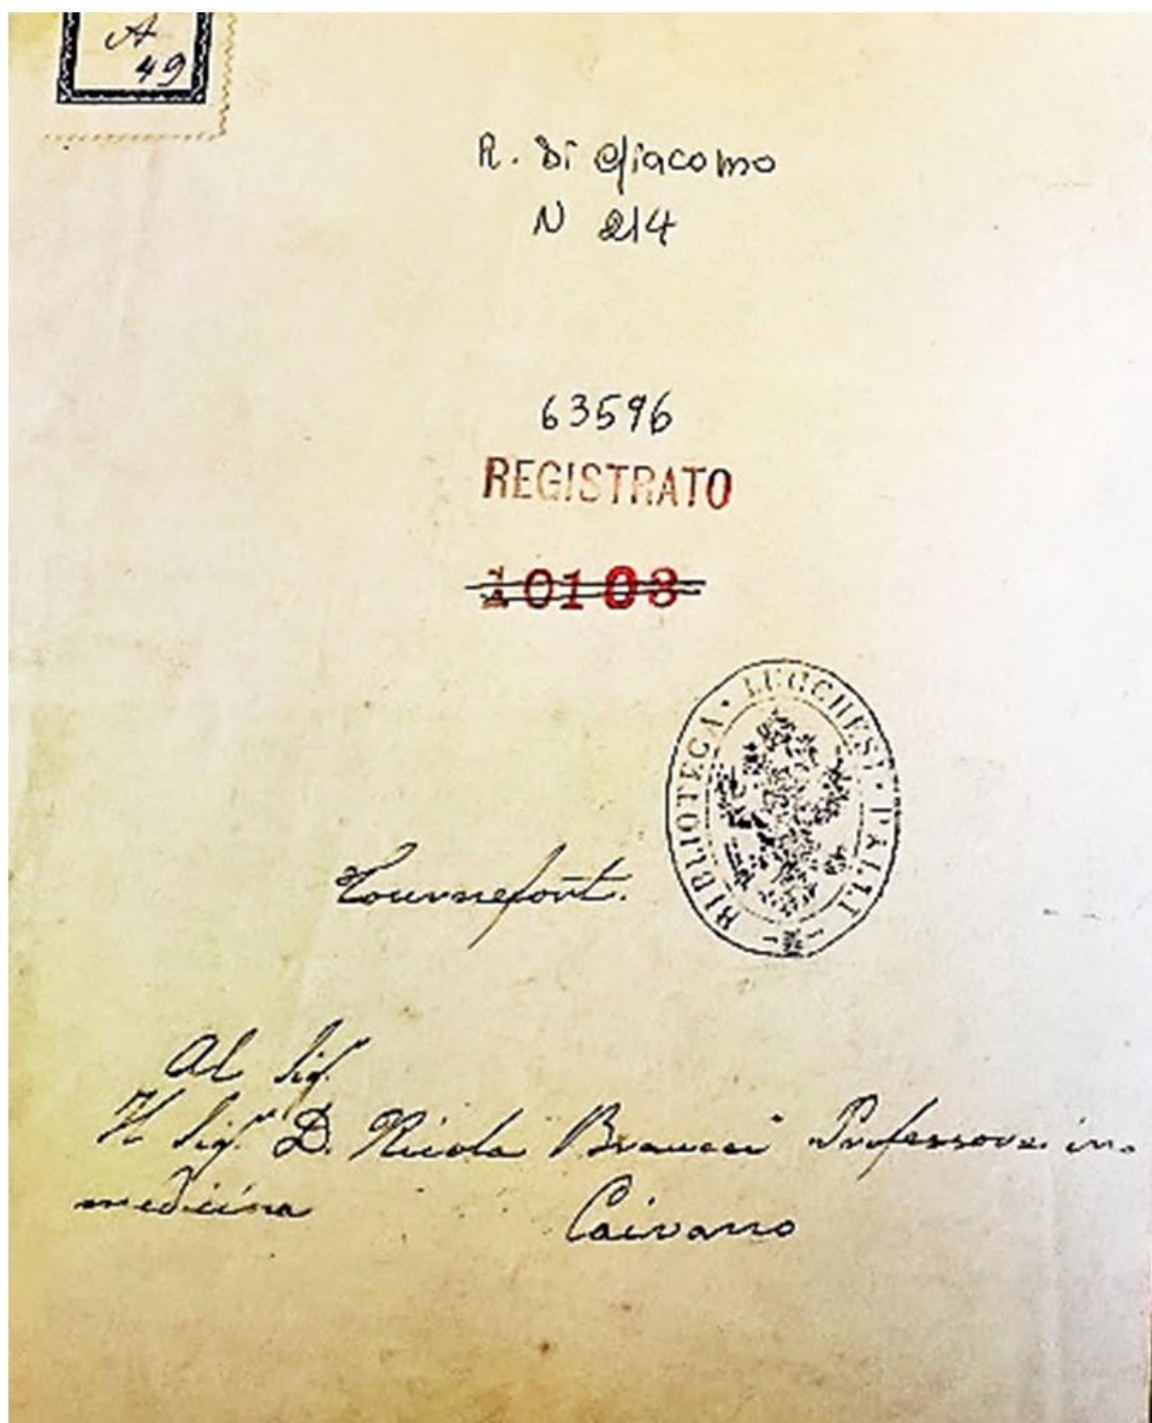 A
49
R. Di Giacomo
N 214
63596
REGISTRATO
10103
BIBLIOTECA · LUCCHESI · PALLI
Tournefort.
Al Sigr.
Il Sigr. D. Nicola Braucci Professore in
medicina Caivano